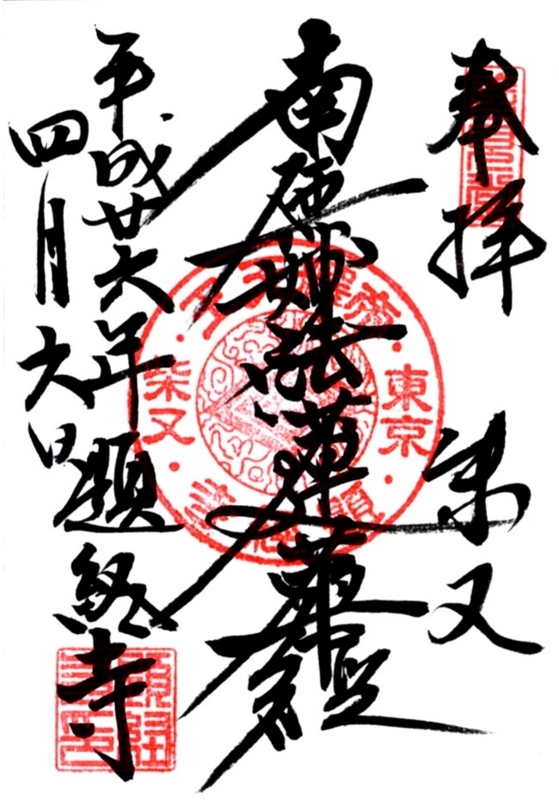 奉拝
柴又
南無妙法蓮華經
平成廿六年
四月六日
題経寺
東京
柴又